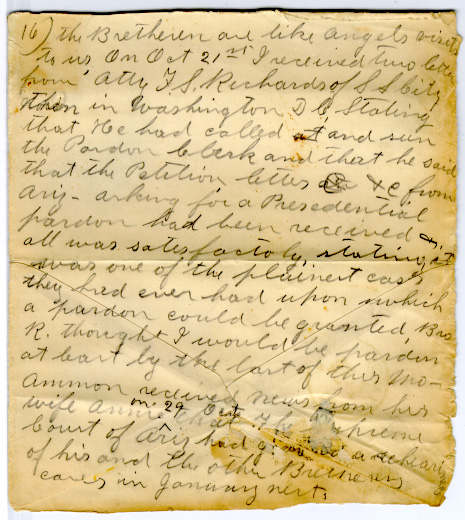 16) the Bretheren are like angels visits
to us On Oct 21st I received two letters
from Atty F. S. Richards of S S City
then in Washington D C, Stating
that He had called at and seen
the Pardon Clerk and that he said
that the Petition letters &c from
Ariz - asking for a Presedential
pardon had been received &
all was satisfactoly, stating it
was one of the plainest cases
they had ever had upon which
a pardon could be granted, Bro
R. thought I would be pardin
at least by the last of this mo-
Ammon received news from his
wife Annie on 29 Oct that The Supreme
Court of Ariz had a rehearing
of his and the othe Bretheren
cases in January next.